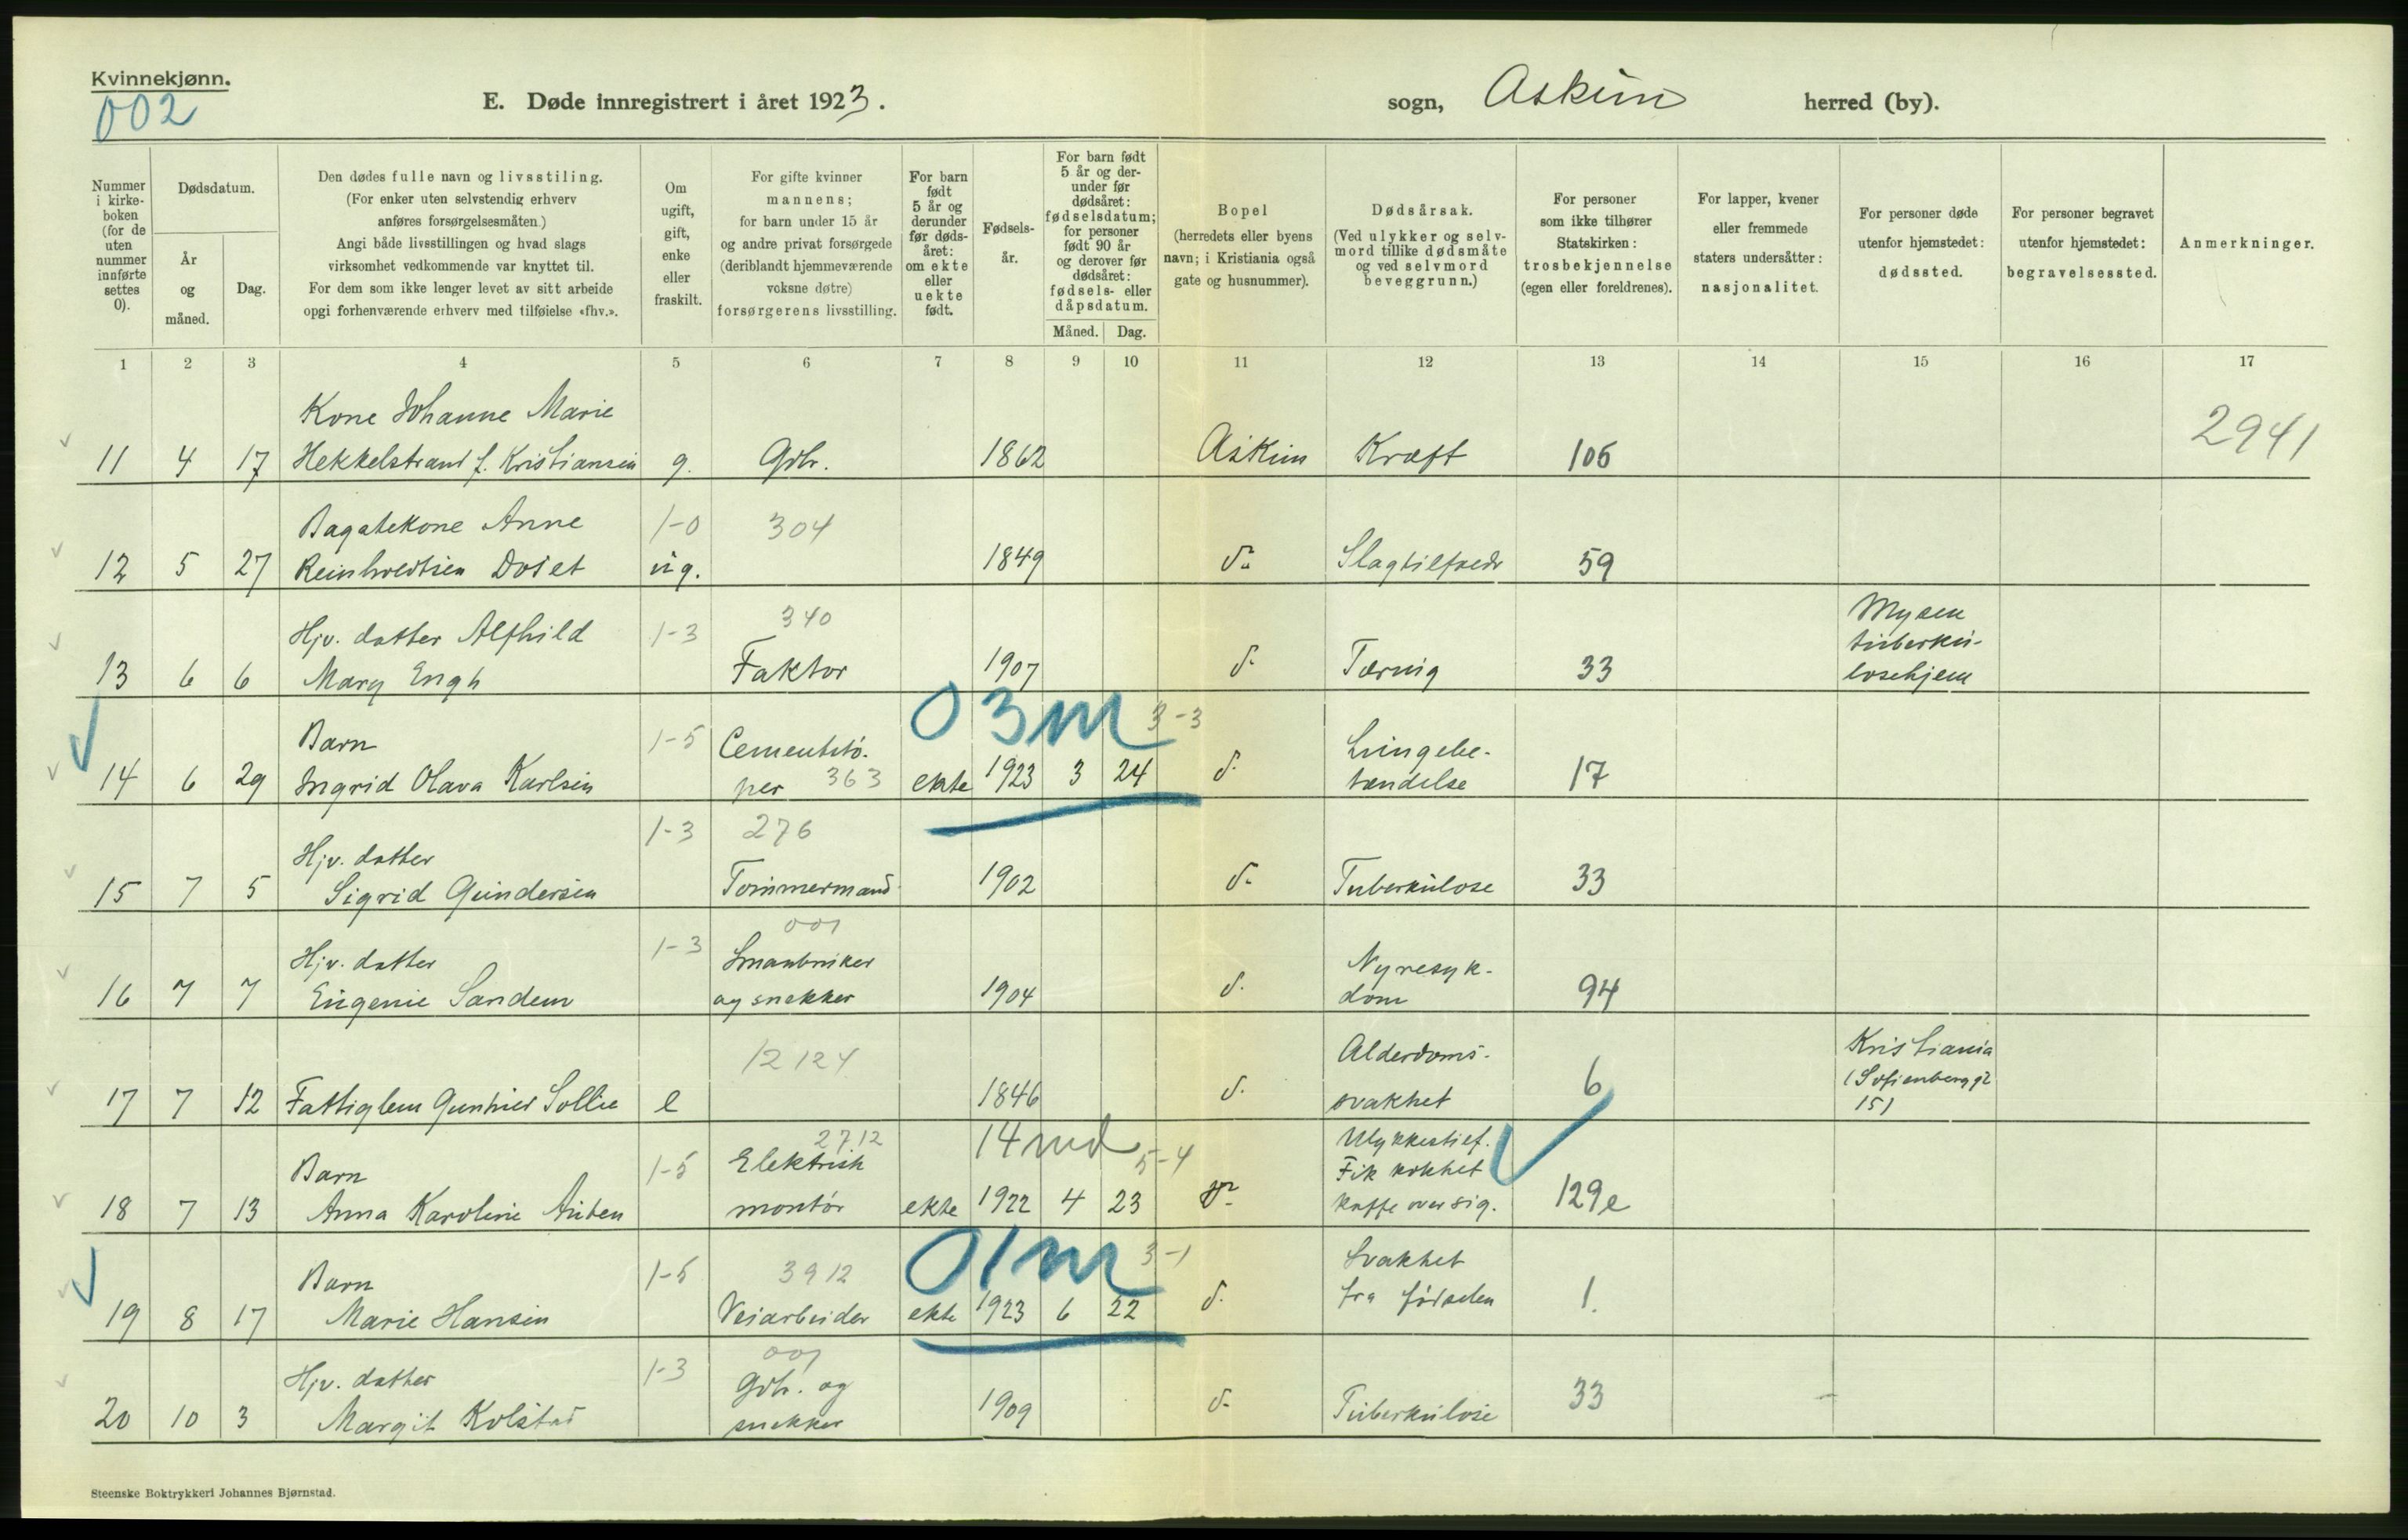 Kvinnekjønn.
002
E. Døde innregistrert i året 1923.
sogn, Askim herred (by).
Nummer i kirkeboken (for de uten nummer innførte settes 0).
Dødsdatum.
År og måned.
Dag.
Den dødes fulle navn og livsstiling.
(For enker uten selvstendig erhverv
anføres forsørgelsesmåten.)
Angi både livsstillingen og hvad slags
virksomhet vedkommende var knyttet til.
For dem som ikke lenger levet av sitt arbeide
opgi forhenværende erhverv med tilføielse «fhv.».
Om ugift, gift, enke eller fraskilt.
For gifte kvinner
mannens;
for barn under 15 år
og andre privat forsørgede
(deriblandt hjemmeværende
voksne døtre)
forsørgerens livsstilling.
For barn født 5 år og derunder før dødsåret: om ekte eller uekte født.
Fødselsår.
For barn født 5 år og derunder før dødsåret: fødselsdatum; for personer født 90 år og derover før dødsåret: fødsels- eller dåpsdatum.
Måned. Dag.
Bopel
(herredets eller byens
navn; i Kristiania også
gate og husnummer).
Dødsårsak.
(Ved ulykker og selv-
mord tillike dødsmåte
og ved selvmord
beveggrunn.)
For personer
som ikke tilhører
Statskirken:
trosbekjennelse
(egen eller foreldrenes).
For lapper, kvener
eller fremmede
staters undersåtter:
nasjonalitet.
For personer døde
utenfor hjemstedet:
dødssted.
For personer begravet
utenfor hjemstedet:
begravelsessted.
Anmerkninger.
1 2 3 4 5 6 7 8 9 10 11 12 13 14 15 16 17
Kone Johanne Marie
11 4 17 Hekkelstrand f. Kristiansen g. Gbr. 1862 Askim Kræft 106 2941
Anne 1-0 304
12 5 27 ug. 1849 d: 59
Hjv. datter Alfhild 1-3 340 Mysen
tuberku-
13 6 6 Mary Engh Faktor 1907 d: Tæring 33 losehjem
03m 3-3
Barn 1-5 Cementstø- Lungebe-
14 6 29 Ingrid Olava Karlsen per 363 ekte 1923 3 24 d: tændelse 17
1-3 276
Hjv. datter
15 7 5 Sigrid Gundersen Tømmermand 1902 d: Tuberkulose 33
001
Hjv. datter 1-3 Småbruker Nyresyk-
16 7 7 Eugenie Sandem og snekker 1904 d: dom 94
12124 Alderdoms- Kristiania
(Sofienberggt
17 7 12 Fattiglem e 1846 d: svakhet 6 15)
2712 14 md 5-4 Ulykkestilf.
Barn 1-5 Elektrisk Fik kokhet
18 7 13 Anna Karoline montør ekte 1922 4 23 kaffe over sig. 129e
01m 3-1
Barn 1-5 3912 Svakhet
19 8 17 Marie Hansen Veiarbeider ekte 1923 6 22 d: fra fødselen 1.
001
Hjv. datter 1-3 Gbr. og
20 10 3 Margit Kolstad snekker 1909 d: Tuberkulose 33
Steenske Boktrykkeri Johannes Bjørnstad.